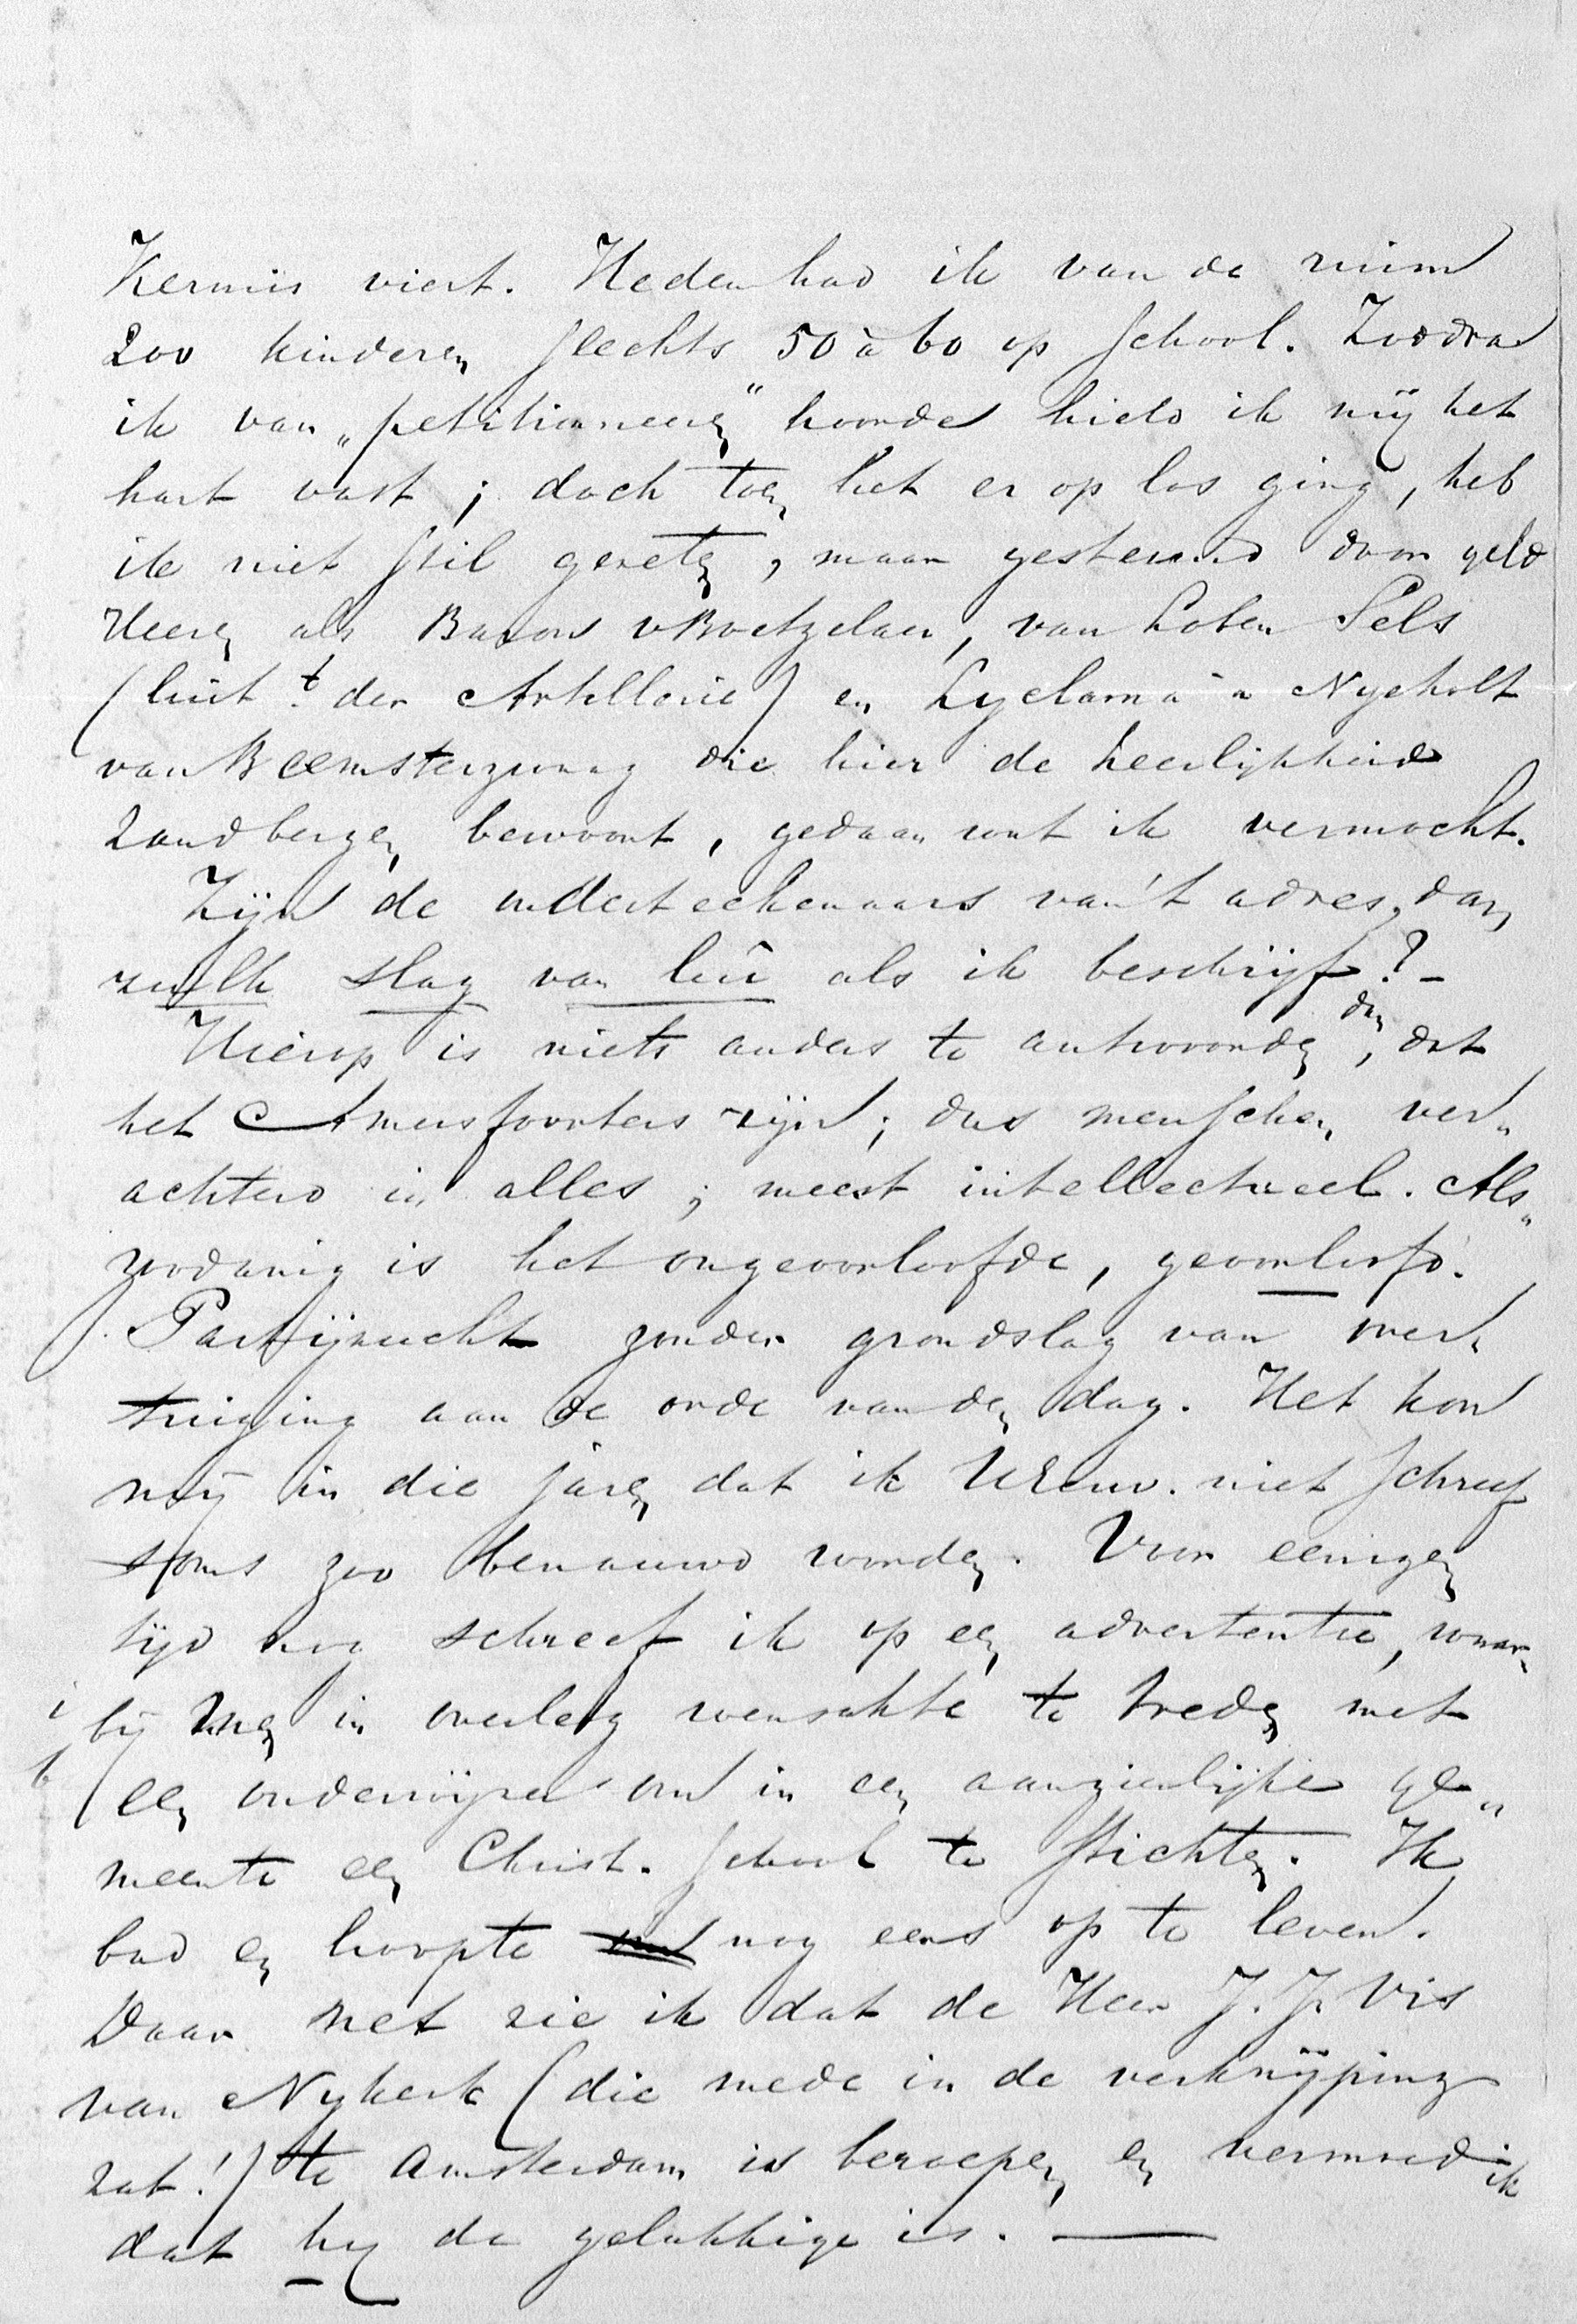 Kermis viert. Heden had ik van de ruim
200 kinderen slechts 50 à 60 op school. Zoodra
ik van „petitionneeren" hoorde hield ik mij het
hart vast; doch toen het er op los ging, heb
ik niet stil gezeten, maar gesteund door geld
Heeren als Baron v Boetzelaer, van Loben Sels
(luit.t der Artillerie) en Lyclama à Nyeholt
van Beemsterzwaag die hier de heerlijkheid
Zandbergen bewoont, gedaan wat ik vermocht.
Zijn de onderteekenaars van 't adres, dan
zulk slag van luî als ik beschrijf? -
Hierop is niets anders te antwoorden, dan dat
het Amersfoorters zijn; dus menschen ver„
achterd in alles; meest intellectueel. Als„
zoodanig is het ongeoorloofde, geoorloofd.
Partijzucht zonder grondslag van over„
tuiging aan de orde van den dag. Het kon
mij in die jaren dat ik UEerw. niet schreef
soms zoo benauwd worden. Voor eenigen
tijd nog schreef ik op een advertentie, waar„
bij men in overleg wenschte te treden met
een onderwijzer om in een aanzienlijke ge„
meente een Christ. school te stichten. Ik
bad en hoopte nog eens op te leven.
Daar net zie ik dat de Heer J. J. Vis
van Nykerk (die mede in de verknijping
zat!) te Amsterdam is beroepen en vermoed ik
dat hy de gelukkige is. —